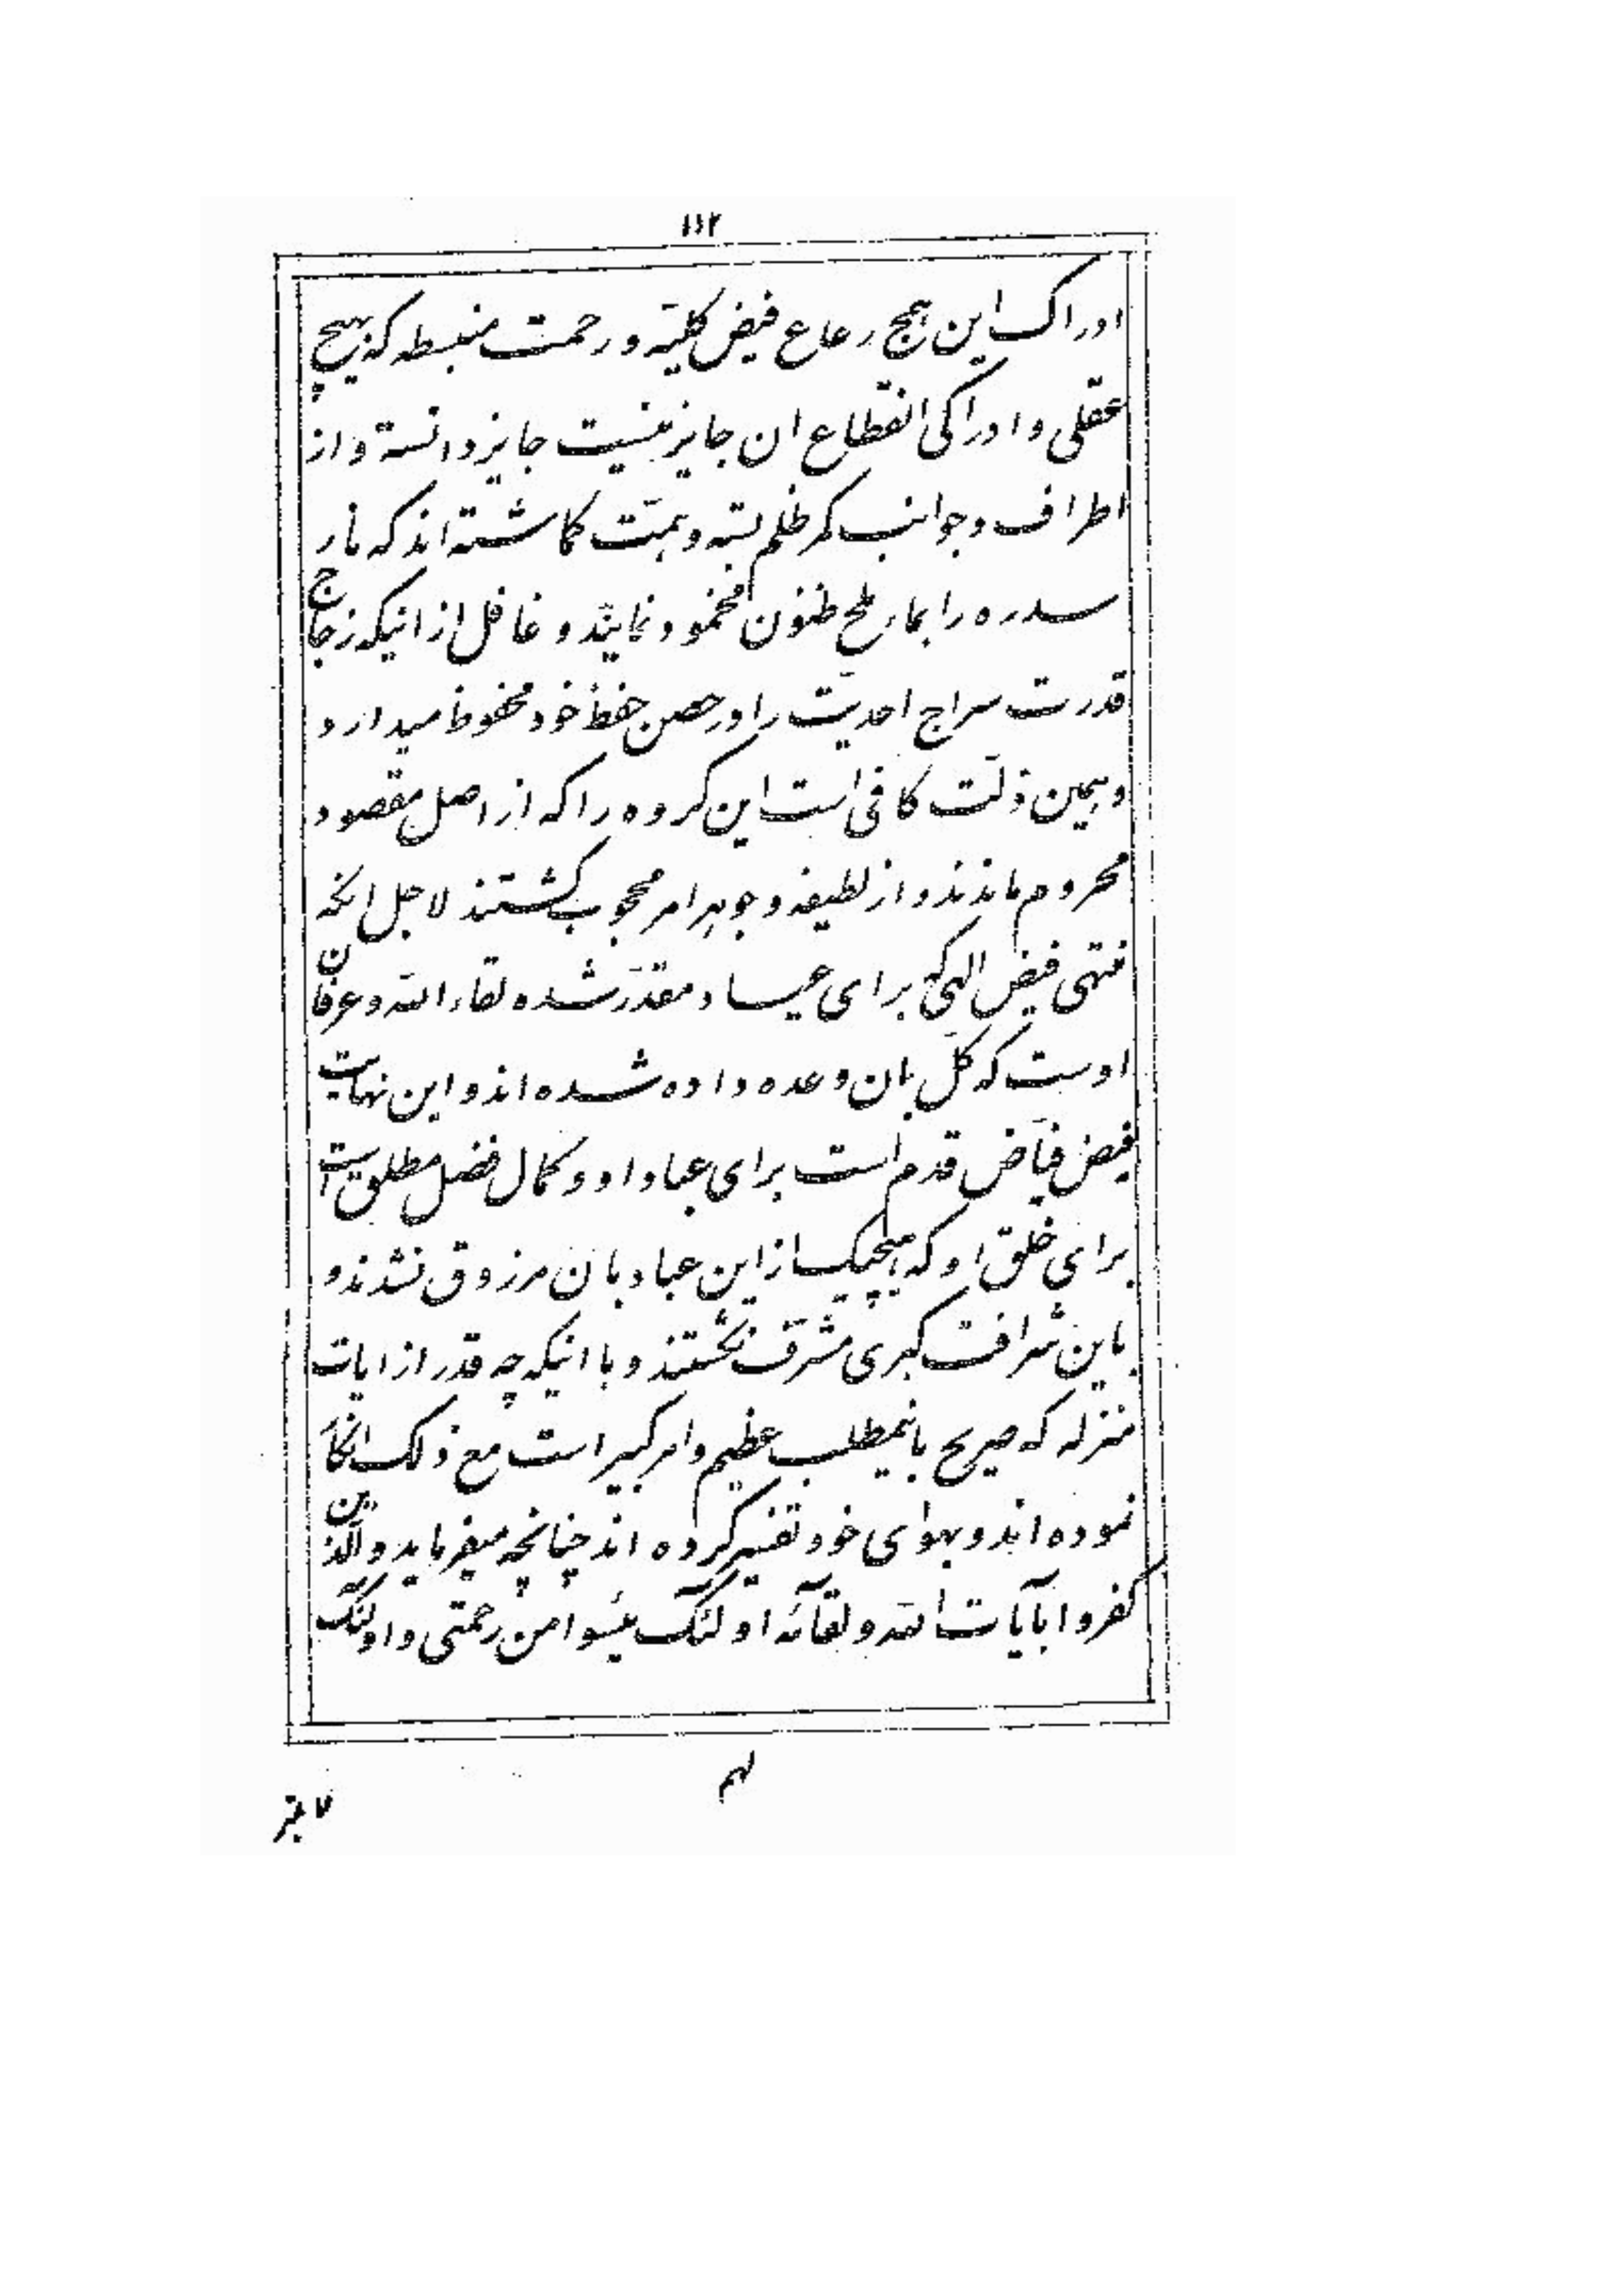 ١١٢
ادراک این همج رعاع فیض کلیّه و رحمت منبسطه که بهیچ
عقلی و ادراکی انقطاع ان جایز نیست جایز دانسته و از
اطراف و جوانب کمر ظلم بسته و همّت کماشته اند که نار
سدره را بماء ملح ظنون مخمود نمایند و غافل از اینکه زجاج
قدرت سراج احدیّت را در حصن حفظ خود محفوظ میدارد
و همین ذلّت کافی است این کروه را که از اصل مقصود
محروم ماندند و از لطیفه و جوهر امر محجوب کشتند لاجل انکه
منتهی فیض الهی که برای عباد مقدّر شده لقاء اللّه و عرفان
اوست که کلّ بان وعده داده شده اند و این نهایت
فیض فیّاض قدم است برای عباد او و کمال فضل مطلق است
برای خلق او که هیچیک از این عباد بان مرزوق نشدند و
باین شرافت کبری مشرّف نکشتند و با اینکه چه قدر از ایات
منزله که صریح باینمطلب عظیم و امر کبیر است مع ذلک انکار
نموده اند و بهوای خود تفسیر کرده اند چنانچه میفرماید و الّذین
کفروا بآیات اللّه و لقآئه اولئک یئسوا من رحمتی و اولئک
لهم